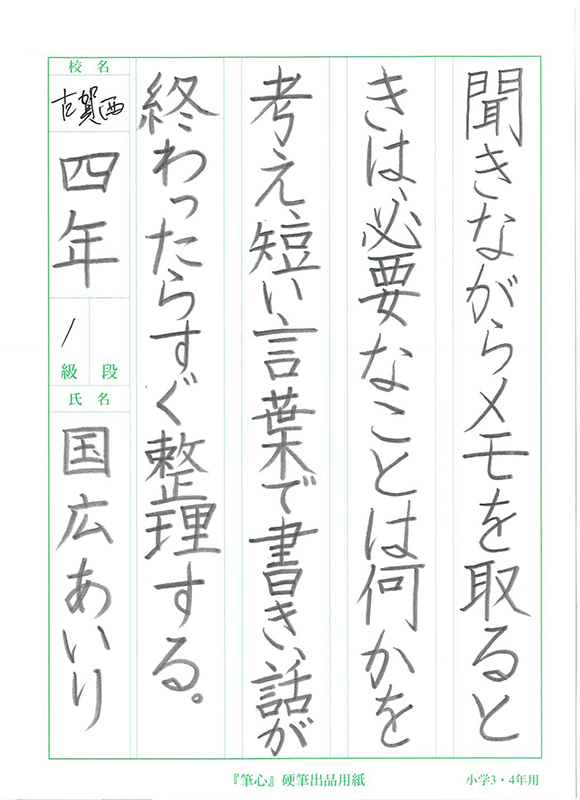 聞きながらメモを取ると
きは、必要なことは何かを
考え、短い言葉で書き、話が
終わったらすぐ整理する。
校名
古賀西
四年
1
級 段
氏名
国広あいり
『筆心』硬筆出品用紙
小学3・4年用